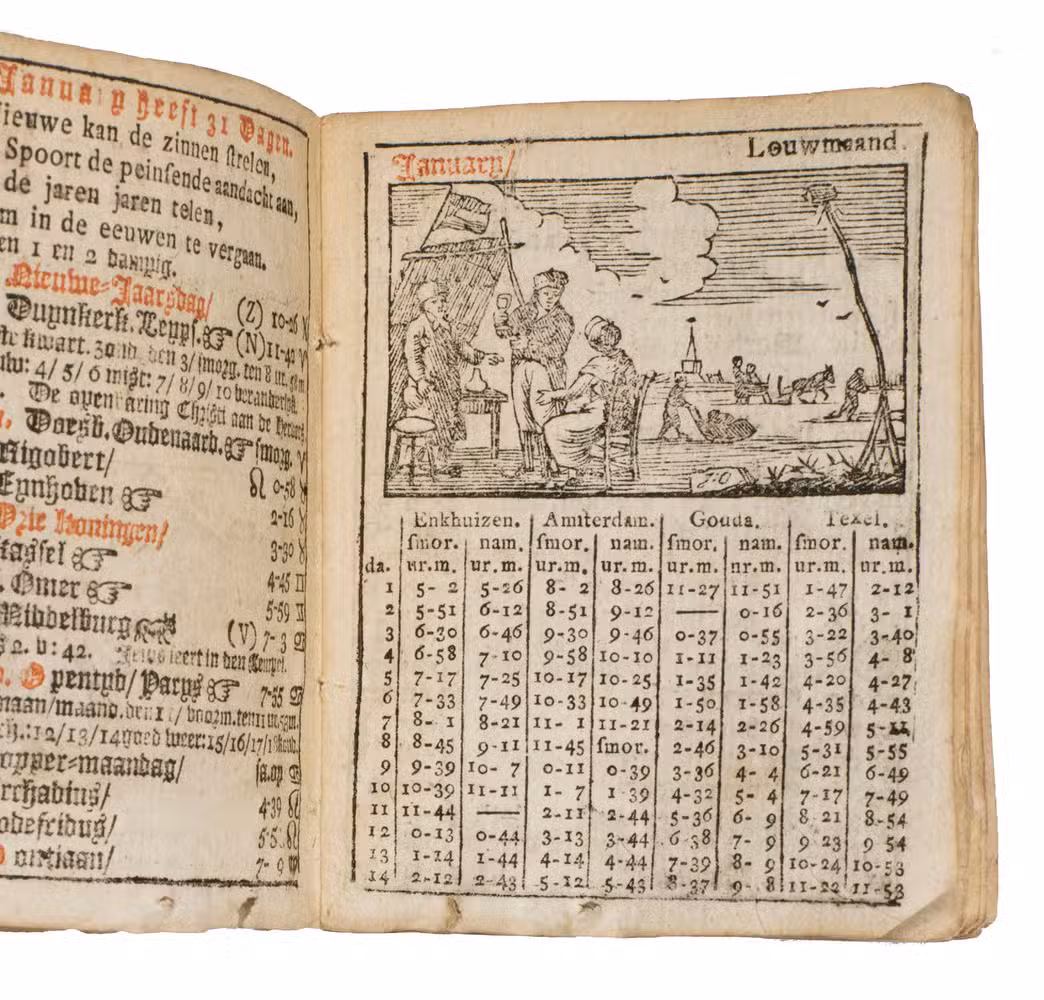 January heeft 31 Dagen.
ieuwe kan de zinnen ſtrelen,
Spoort de peinſende aandacht aan,
de jaren jaren telen,
m in de eeuwen te vergaan.
en 1 en 2 dampig.
Nieuwe-Jaarsdag/ (Z) 10-26
Duynkerk. Leyps. ☞ (N) 11-42
kwart. zond. den 3/ ſmorg. ten 8 ur.
4/ 5/ 6 miſt: 7/ 8/ 9/ 10 veranderlik
De openbaring Chriſti aan de
Dorſb. Oudenaard. ☞ ſmorg.
Rigobert/
Eynhoven ☞ ♌ 0-58
Drie Koningen/ 2-16
kaſſel ☞ 3-30 ♉
. Omer ☞ 4-45 ♊
Middelburg ☞ 5-59 ♊
(V) 7-3
2. v: 42. Jeſus leert in den Tempel.
pentyd/ Parys ☞ 7-55
maan/ maand. den 11/ voorm. ten 11 ur.
12/ 13/ 14 goed weer: 15/ 16/ 17/
opper-maandag/ ſa. op
rchadius/ 4-39 ♌
odefridus/ 5-5 ♌
ontiaan/ 7-9 ♍
January/ Louwmaand.
J·O
Enkhuizen. Amſterdam. Gouda. Texel.
ſmor. nam. ſmor. nam. ſmor. nam. ſmor. nam.
da. ur.m. ur.m. ur.m. ur.m. ur.m. nr.m. ur.m. ur.m.
1 5- 2 5-26 8- 2 8-26 11-27 11-51 1-47 2-12
2 5-51 6-12 8-51 9-12 —— 0-16 2-36 3- 1
3 6-30 6-46 9-30 9-46 0-37 0-55 3-22 3-40
4 6-58 7-10 9-58 10-10 1-11 1-23 3-56 4- 8
5 7-17 7-25 10-17 10-25 1-35 1-42 4-20 4-27
6 7-33 7-49 10-33 10-49 1-50 1-58 4-35 4-43
7 8- 1 8-21 11- 1 11-21 2-14 2-26 4-59 5-11
8 8-45 9-11 11-45 ſmor. 2-46 3-10 5-31 5-55
9 9-39 10- 7 0-11 0-39 3-36 4- 4 6-21 6-49
10 10-39 11-11 1- 7 1 39 4-32 5- 4 7-17 7-49
11 11-44 —— 2-11 2-44 5-36 6- 9 8 21 8-54
12 0-13 0-44 3-13 3-44 6 38 7- 9 9 23 9 54
13 1-14 1-44 4-14 4-44 7-39 8- 9 10-24 10-53
14 2-12 2-43 5-12 5-43 8-37 9- 8 11-22 11-53